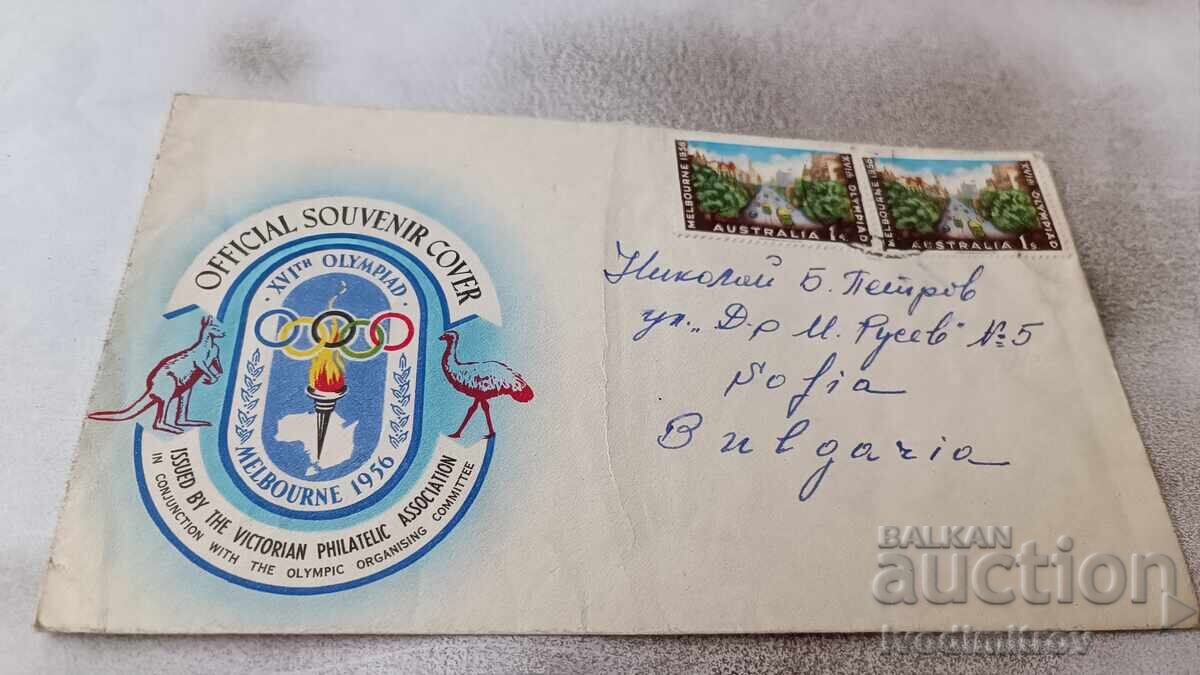 OFFICIAL SOUVENIR COVER
XVITH OLYMPIAD
MELBOURNE 1956
ISSUED BY THE VICTORIAN PHILATELIC ASSOCIATION
IN CONJUNCTION WITH THE OLYMPIC ORGANISING COMMITTEE
MELBOURNE 1956
XVITH OLYMPIAD
AUSTRALIA
MELBOURNE 1956
XVITH OLYMPIAD
AUSTRALIA 1s
Николай Б. Петров
ул. „Д-р М. Русев" № 5
Sofia
Bulgaria
BALKAN
auction
ivodimitrov